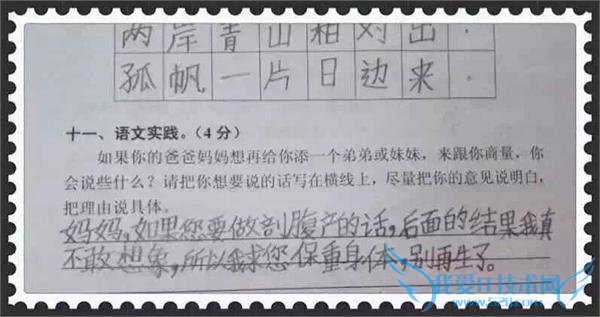 两岸青山相对出.
孤帆一片日边来.
十一、语文实践。(4分)
如果你的爸爸妈妈想再给你添一个弟弟或妹妹,来跟你商量,你
会说些什么?请把你想要说的话写在横线上,尽量把你的意见说明白,
把理由说具体。
妈妈,如果您要做剖腹产的话,后面的结果我真
不敢想象,所以我求您保重身体,别再生了。
我爱IT技术网